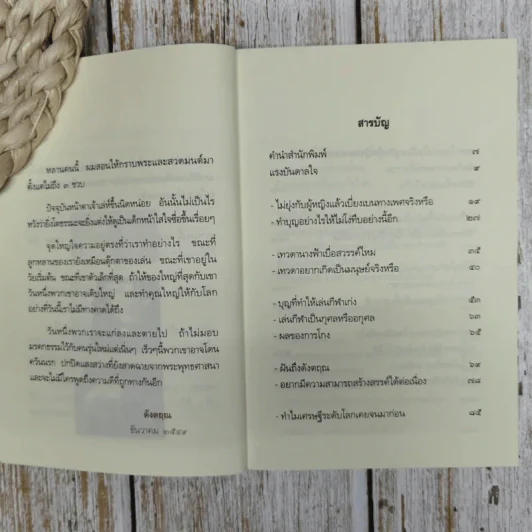 หลานคนนี้ ผมสอนให้กราบพระและสวดมนต์มา
ตั้งแต่ไม่ถึง ๓ ขวบ
ปัจจุบันหน้าตาเจ้าเล่ห์ขึ้นนิดหน่อย อันนั้นไม่เป็นไร
หวังว่ายังโตธรรมะจะยิ่งแต่งให้ดูเป็นเด็กหน้าใสใจซื่อขึ้นเรื่อยๆ
จุดใหญ่ใจความอยู่ตรงที่ว่าเราทำอย่างไร ขณะที่
ลูกหลานของเรายังเหมือนตุ๊กตาของเล่น ขณะที่เขาอยู่ใน
วัยเริ่มต้น ขณะที่เขาตัวเล็กที่สุด ถ้าให้ของใหญ่ที่สุดกับเขา
วันหนึ่งพวกเขาอาจเติบใหญ่ และทำคุณใหญ่ให้กับโลก
อย่างที่วันนี้เราไม่มีทางคาดได้ถึง
วันหนึ่งพวกเราจะแก่ลงและตายไป ถ้าไม่มอบ
มรดกธรรมไว้กับคนรุ่นใหม่แต่เนิ่นๆ เร็วๆนี้พวกเขาอาจโดน
ควันนรก ปกปิดแสงสว่างที่ยังสาดฉายจากพระพุทธศาสนา
และจะไม่มีใครพูดถึงความดีที่ถูกทางกันอีก
ดังตฤณ
ธันวาคม ๒๕๔๙
สารบัญ
คำนำสำนักพิมพ์ ๗
แรงบันดาลใจ ๙
- ไม่ยุ่งกับผู้หญิงแล้วเบี่ยงเบนทางเพศจริงหรือ ๑๙
- ทำบุญอย่างไรให้ไม่โง่ทึบอย่างนี้อีก ๒๗
- เทวดานางฟ้าเบื่อสวรรค์ไหม ๓๕
- เทวดาอยากเกิดเป็นมนุษย์จริงหรือ ๔๐
- บุญที่ทำให้เล่นกีฬาเก่ง ๕๓
- เล่นกีฬาเป็นกุศลหรืออกุศล ๖๓
- ผลของการโกง ๖๕
- ฝันถึงดังตฤณ ๖๙
- อยากมีความสามารถสร้างสรรค์ได้ต่อเนื่อง ๗๘
- ทำไมเศรษฐีระดับโลกเคยจนมาก่อน ๘๕